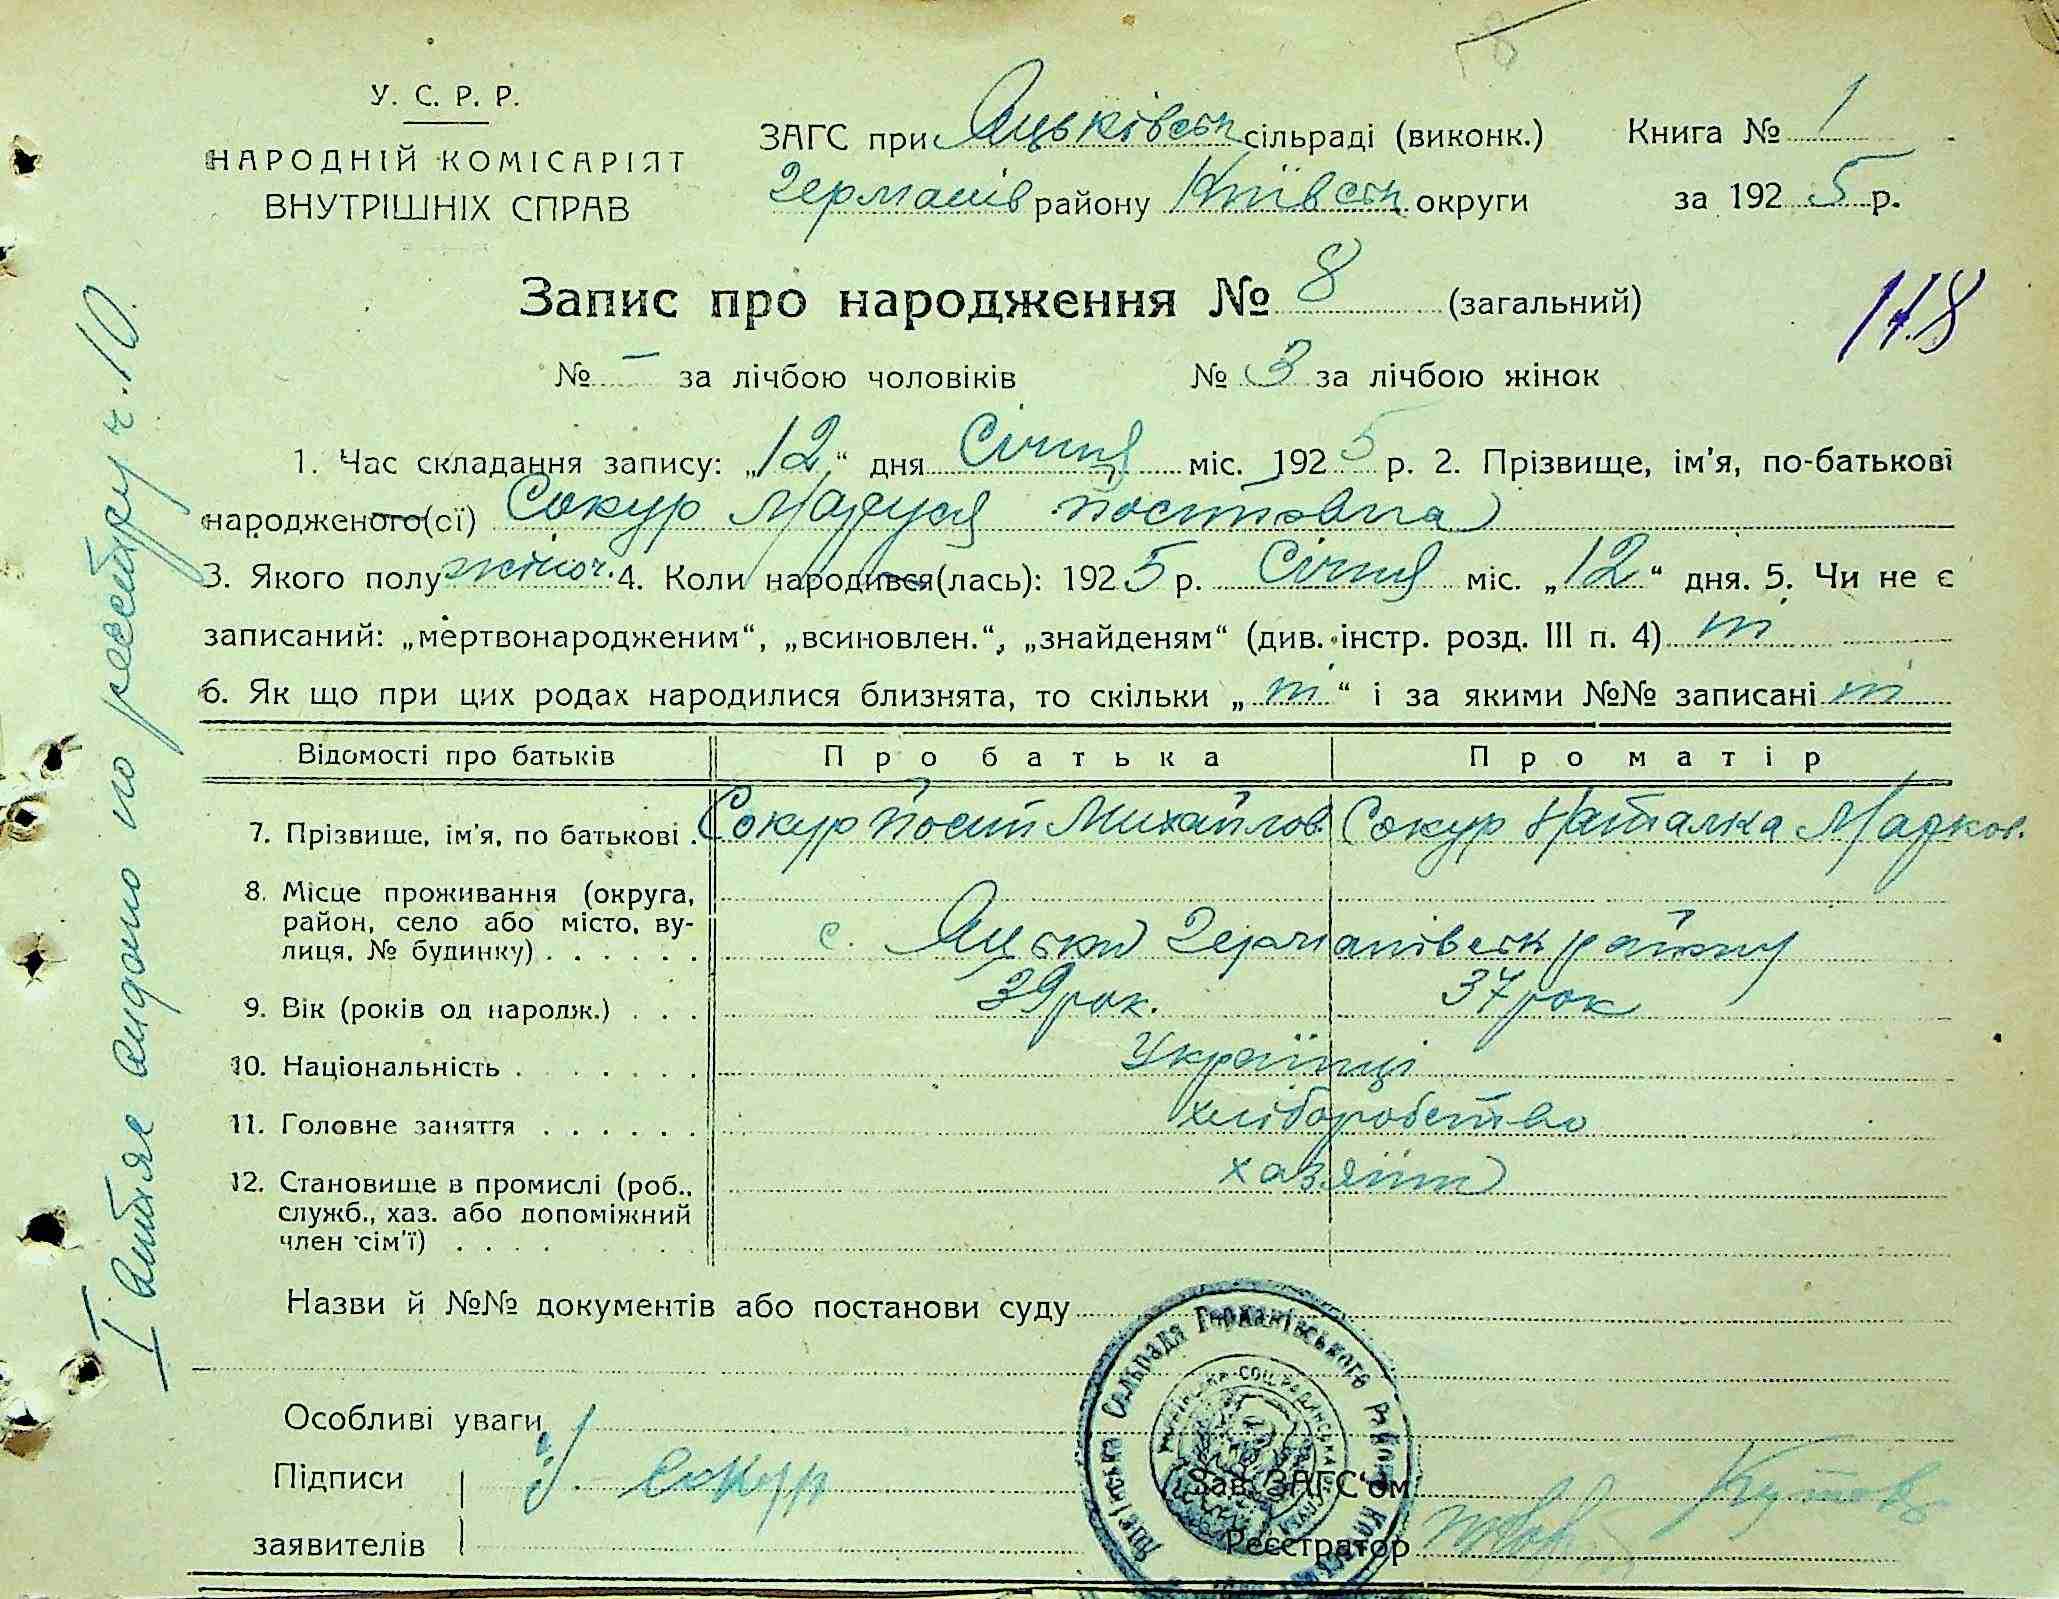 У. С. Р. Р.
НАРОДНІЙ КОМІСАРІЯТ
ВНУТРІШНІХ СПРАВ
ЗАГС при Яцьківськ сільраді (виконк.) Книга № 1
Германів району Київськ округи за 1925 р.
Запис про народження № 8 (загальний)
118
№ – за лічбою чоловіків № 3 за лічбою жінок
1. Час складання запису: „12“ дня Січня міс. 1925 р. 2. Прізвище, ім'я, по-батькові
народженого(сї) Сокур Маруся Йосиповна
3. Якого полу жіноч. 4. Коли народився(лась): 1925 р. Січня міс. „12“ дня. 5. Чи не є
записаний: „мертвонародженим“, „всиновлен.“, „знайденям“ (див. інстр. розд. III п. 4) ні
6. Як що при цих родах народилися близнята, то скільки „ні“ і за якими №№ записані ні
Відомості про батьків Про батька Про матір
7. Прізвище, ім'я, по батькові . Сокур Йосип Михайлов. Сокур Наталка Марков.
8. Місце проживання (округа,
район, село або місто, ву-
лиця, № будинку) . . . . . . с. Яцьки Германівськ району
9. Вік (років од народж.) . . . 39 рок. 37 рок
10. Національність . . . . . . . Українці
11. Головне заняття . . . . . . хліборобство
12. Становище в промислі (роб., хазяїн
служб., хаз. або допоміжний
член сім'ї) . . . .
Назви й №№ документів або постанови суду
Особливі уваги
Підписи Й Сокур Зав. ЗАГС'ом
заявителів Реєстратор
I витяг видано по реєстру ч. 10
Сільрада Германівського Району